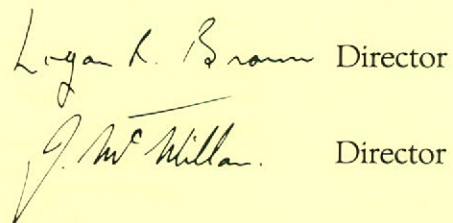 Logan R. Brown Director
J. McMillan. Director